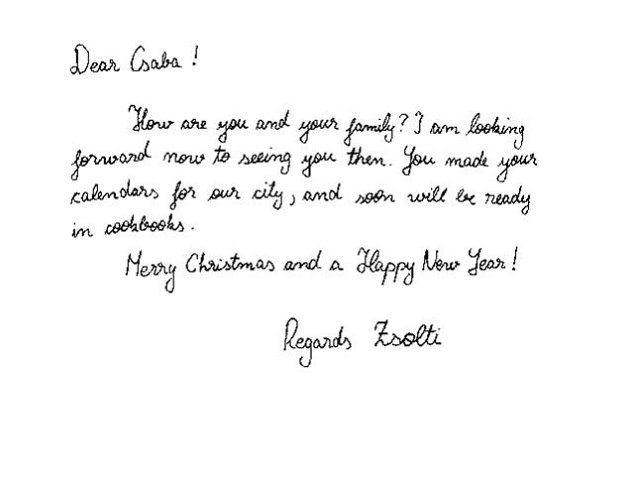 Dear Csaba!
How are you and your family? I am looking
forward now to seeing you then. You made your
calendars for our city, and soon will be ready
in cookbooks.
Merry Christmas and a Happy New Year!
Regards Zsolti